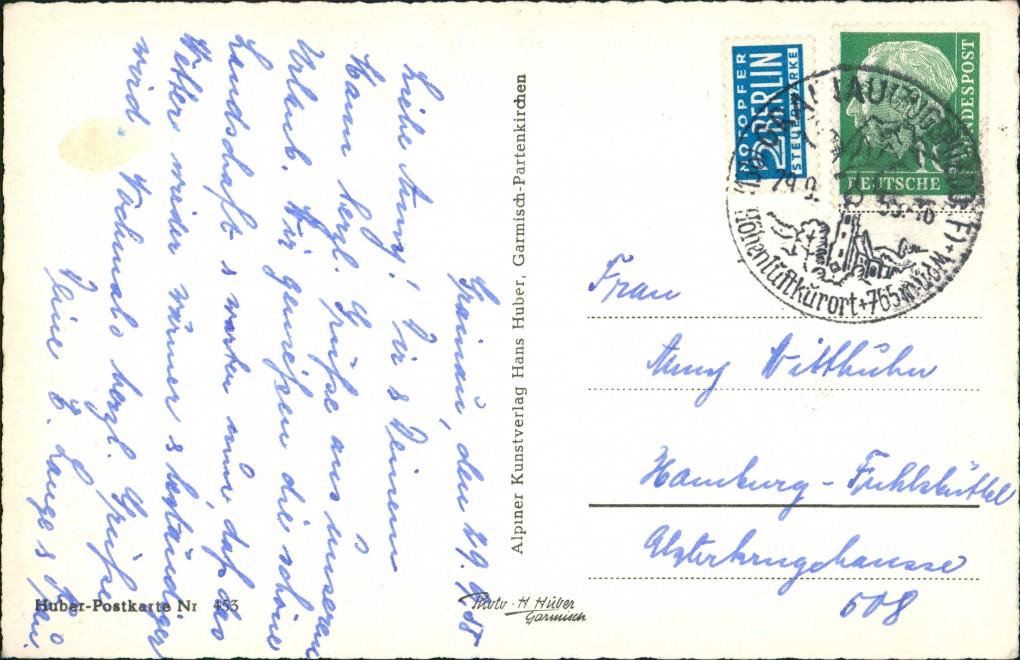 Grainau, den 29.9.55
Liebe Anny! Dir & Deinem
Mann herzl. Grüße aus unserem
Urlaub. Wir genießen die schöne
Landschaft & warten nun, daß das
Wetter wieder wärmer & beständiger
wird. Nochmals herzl. Grüße
Deine E. Lange &
Huber-Postkarte Nr 453
Alpiner Kunstverlag Hans Huber, Garmisch-Partenkirchen
Photo - H Huber
Garmisch
NOTOPFER
2 BERLIN
STEUERMARKE
DEUTSCHE
BUNDESPOST
10
29.9.55-18
Höhenluftkurort + 765 m ü.d.M. +
Frau
Anny Witthuhn
Hamburg-Fuhlsbüttel
Alsterkrugchaussee
508